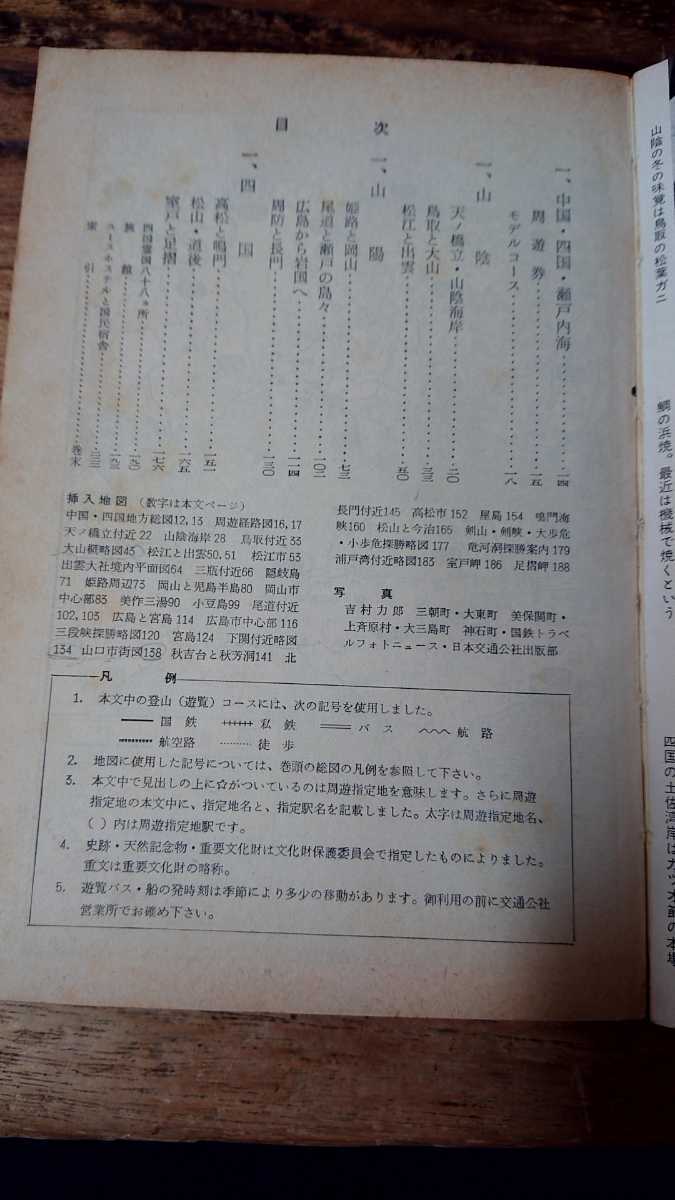 目次
一、中国・四国・瀬戸内海……一四
周遊券……一五
モデルコース……一八
一、山陰
天ノ橋立・山陰海岸……二〇
鳥取と大山……三三
松江と出雲……五〇
一、山陽
姫路と岡山……七三
尾道と瀬戸の島々……一〇二
広島から岩国へ……一一四
周防と長門……一三〇
一、四国
高松と鳴門……一五一
松山・道後……一六五
室戸と足摺……一七六
四国霊国八十八ヵ所……一九〇
旅館……一九二
ユースホステルと国民宿舎……
索引……巻末
挿入地図（数字は本文ページ）
中国・四国地方総図12, 13 周遊経路図16, 17
天ノ橋立付近22 山陰海岸28 鳥取付近33
大山概略図45 松江と出雲50, 51 松江市53
出雲大社境内平面図64 三瓶付近66 隠岐島
71 姫路周辺73 岡山と児島半島80 岡山市
中心部83 美作三湯90 小豆島99 尾道付近
102, 103 広島と宮島114 広島市中心部116
三段峡探勝略図120 宮島124 下関付近略図
134 山口市街図138 秋吉台と秋芳洞141 北
長門付近145 高松市152 屋島154 鳴門海
峡160 松山と今治165 剣山・剣峡・大歩危
・小歩危探勝略図177 竜河洞探勝案内179
浦戸湾付近略図183 室戸岬186 足摺岬188
写真
吉村力郎 三朝町・大東町 美保関町・
上斉原村・大三島町 神石町・国鉄トラベ
ルフォトニュース・日本交通公社出版部
凡例
1. 本文中の登山（遊覧）コースには、次の記号を使用しました。
国鉄 私鉄 バス 航路
航空路 徒歩
2. 地図に使用した記号については、巻頭の総図の凡例を参照して下さい。
3. 本文中で見出しの上に☆がついているのは周遊指定地を意味します。さらに周遊
指定地の本文中に、指定地名と、指定駅名を記載しました。太字は周遊指定地名、
（ ）内は周遊指定地駅です。
4. 史跡・天然記念物・重要文化財は文化財保護委員会で指定したものによりました。
重文は重要文化財の略称。
5. 遊覧バス・船の発時刻は季節により多少の移動があります。御利用の前に交通公社
営業所でお確め下さい。
山陰の冬の味覚は鳥取の松葉ガニ
鯛の浜焼。最近は機械で焼くという
四国の土佐湾岸はカツオ節の本場